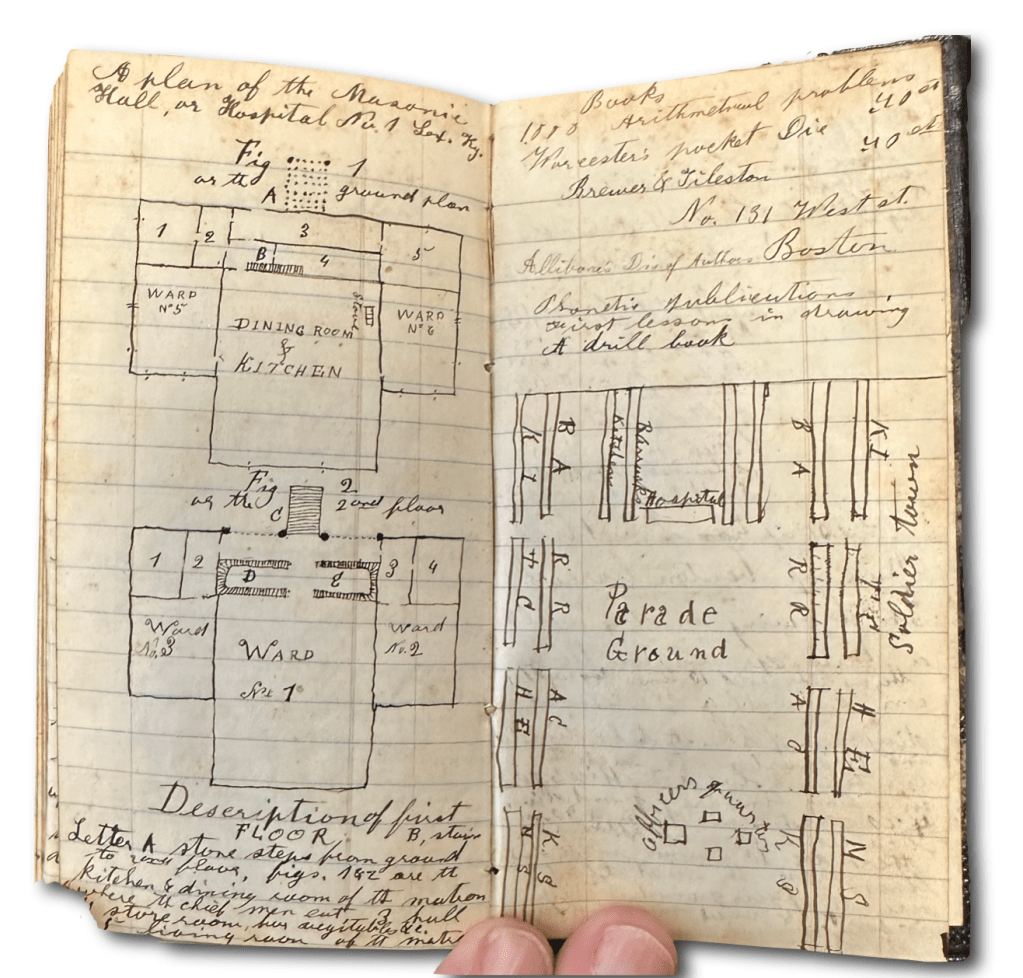 A plan of the Masonic
Hall, or Hospital No. 1 Lex. Ky.
Fig 1
or the ground plan
A
1 2 3 5
B 4
WARD
No 5
Stove
WARD
No 6
DINING ROOM
&
KITCHEN
Fig 2
or the 2nd floor
C
1 2 D E 3 4
Ward
No. 3
WARD
No 1
Ward
No. 2
Description of first
FLOOR B, stairs
Letter A stone steps from ground
to 2nd floor, figs. 1&2 are th
kitchen & dining room of th matron
where th chief men eat 3 hall
store room, for
living room of th
Books
1000 Arithmetical problems
40 ct
Worcester's pocket Dic 40 ct
Brewer & Tileston
No. 131 West st.
Boston
Allibone's Dic of Authors
Phonetic publications
First lessons in drawing
A drill book
KI
BA
Kitchens
Barracks
Hospital
BA
KI
Soldier town
TC
RR
Parade
Ground
RR
HE
AC
AC
HE
Officers quarters
NS
KS
K
NS